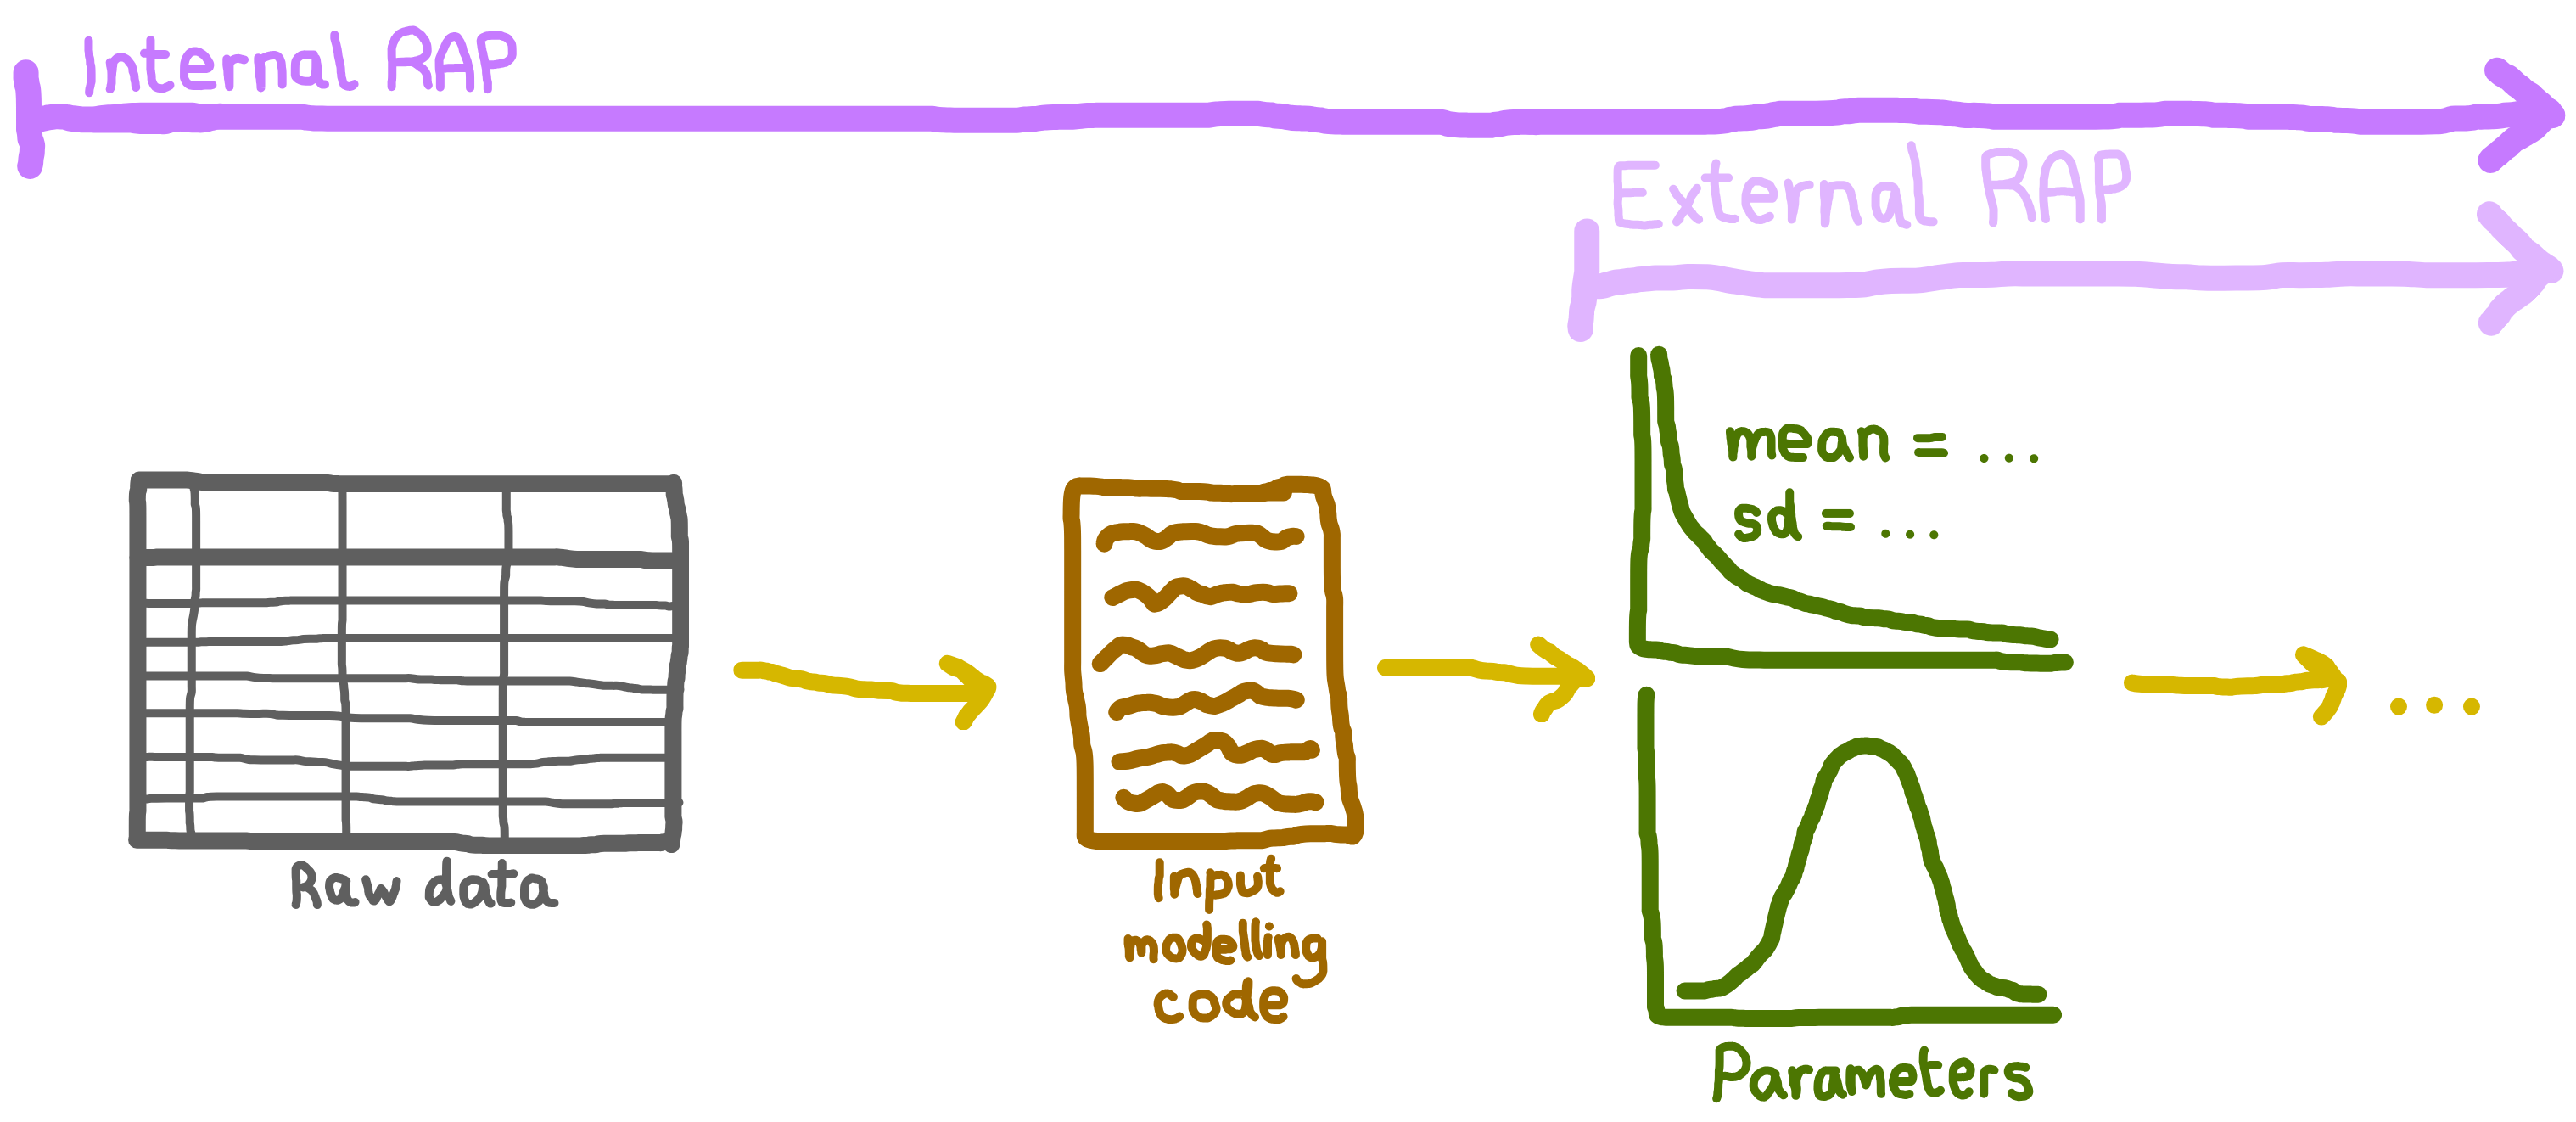 Internal RAP
External RAP
mean = ...
sd = ...
Raw data
Input
modelling
code
Parameters
...